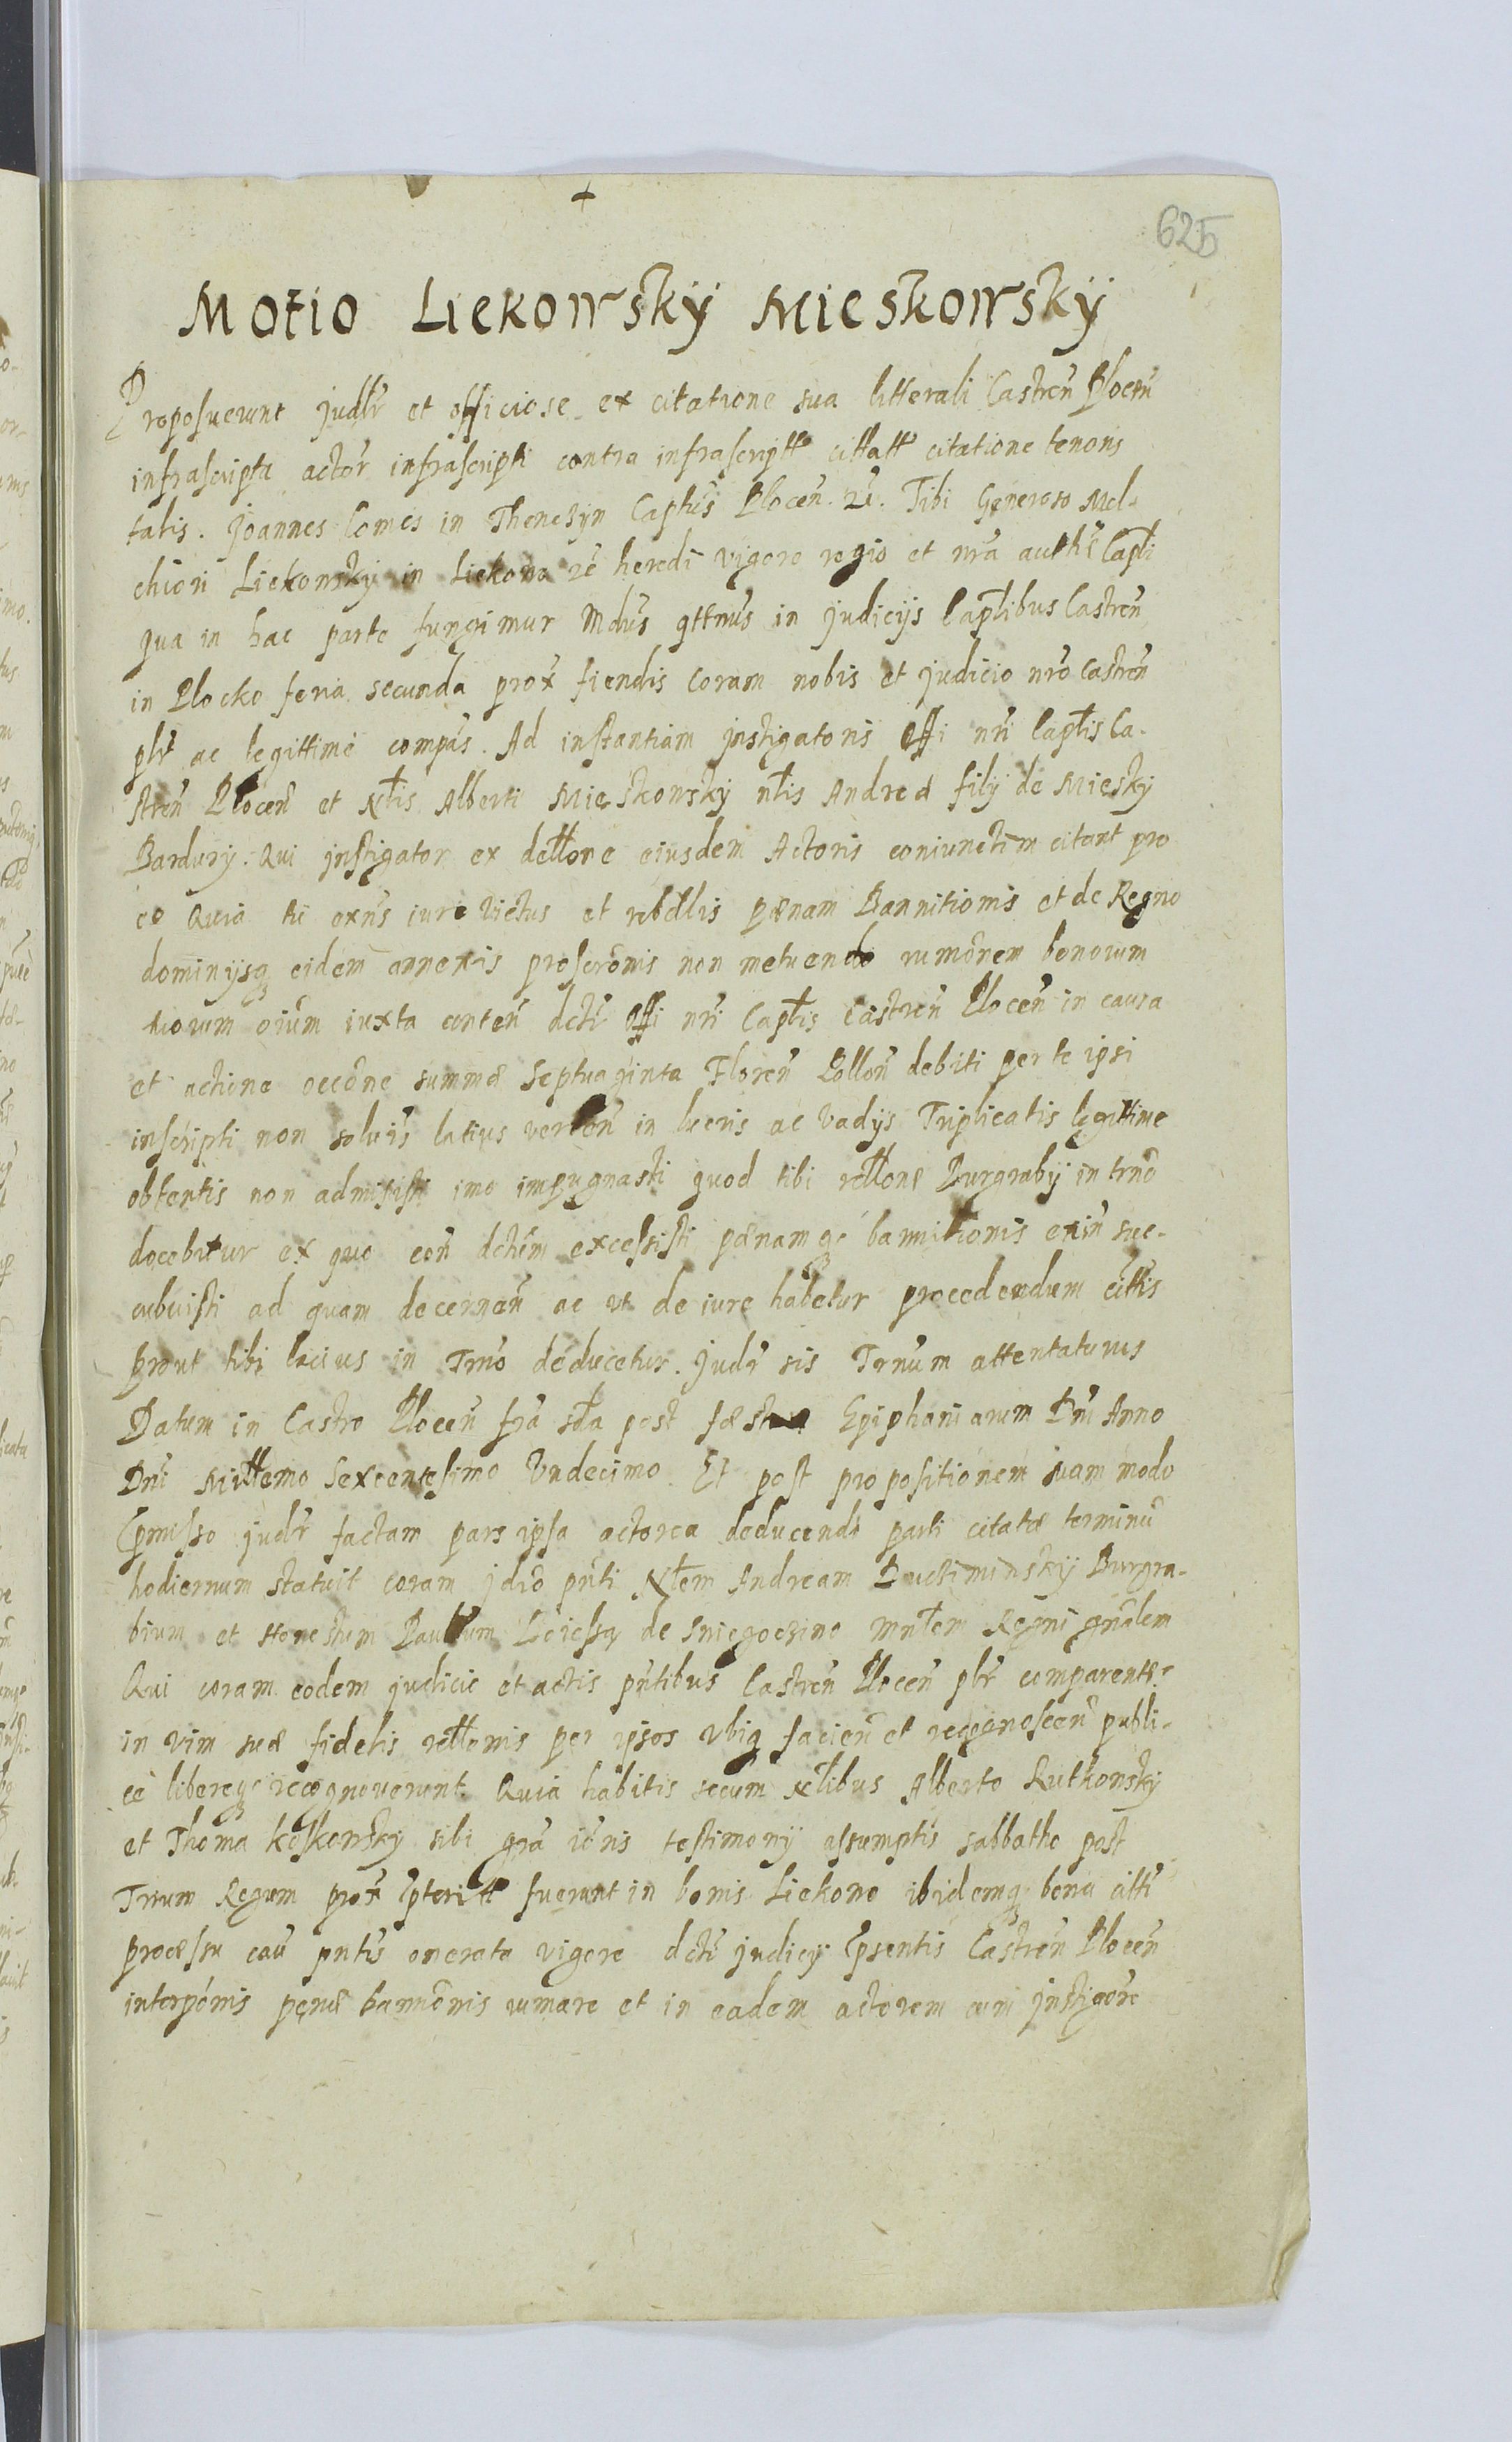 625
Motio Liekowsky Mieskowsky
Proposuerunt judlr et officiose ex citatione sua litterali Castren Plocen
infrascripta actor infrascripti contra infrascriptt cittatt citatione tenoris
talis. Joannes Comes in Thenczyn Captus Plocen. Tibi Generoso Mel-
chiori Liekowsky in Liekowo heredi vigore regio et nra authe Capli
qua in hac parte fungimur Mdus qttnus in judicijs Captlibus Castren
in Plocko feria secunda prox fiendis Coram nobis et judicio nro Castren
plr ac legittime compas. Ad instantiam jnstigatoris Offi nri Captlis Ca-
stren Plocen et Nlis Alberti Mieskowsky nlis Andrea filij de Miesky
Bardury. Qui jnstigator ex dellone eiusdem Actoris coniunctim citant pro
eo Quia tu exns iure victus et rebellis pœnam Bannitionis et de Regno
dominijsq eidem annexis proscronis non metuendo rumorem bonorum
tuorum oium iuxta conten dcti Offi nri Captlis Castren Plocen in causa
et actione occone summæ Septuaginta Floren Pollon debiti per te ipsi
inscripti non solutis latius verten in lucris ac vadys Triplicatis legittime
obtentis non admisisti imo impugnasti quod tibi rellone Burgraby in trno
docebitur ex quo con dctum excessisti pœnamq bannitionis etin suc-
cubuisti ad quam decernen ac vt de iure habetur procedendum cittis
prout tibi lacius in Trno deducetur. Judr sis Trnum attentaturus
Datum in Castro Plocen fra sda post fæsta Epiphaniarum Dni Anno
Dni Millemo Sexcentesimo Vndecimo. Et post propositionem suam modo
pmisso judr factam pars ipsa actorea deducendi parti citatæ terminu
hodiernum statuit coram jdio pnti Nlem Andream Ductiminsky Burgra-
bium et Honestum Paulum de Sniegoczino Mnlem Regni gnalem
Qui coram eodem judicio et actis pntibus Castren Plocen plr comparentes
in vim suæ fidelis rellonis per ipsos vbiq facien et recognoscen publi-
ce libereq recognoverunt. Quia habitis secum Nlibus Alberto Rutkowsky
et Thoma Koskowsky sibi gra ionis testimonij assumptis sabbatho post
Trium Regum prox pteritt fuerunt in bonis Liekowo ibidemq bona citti
processu cau pntis onerata vigore dcti judicij psentis Castren Plocen
interponis penæ bannonis rumare et in eadem actorem cum jnstigore